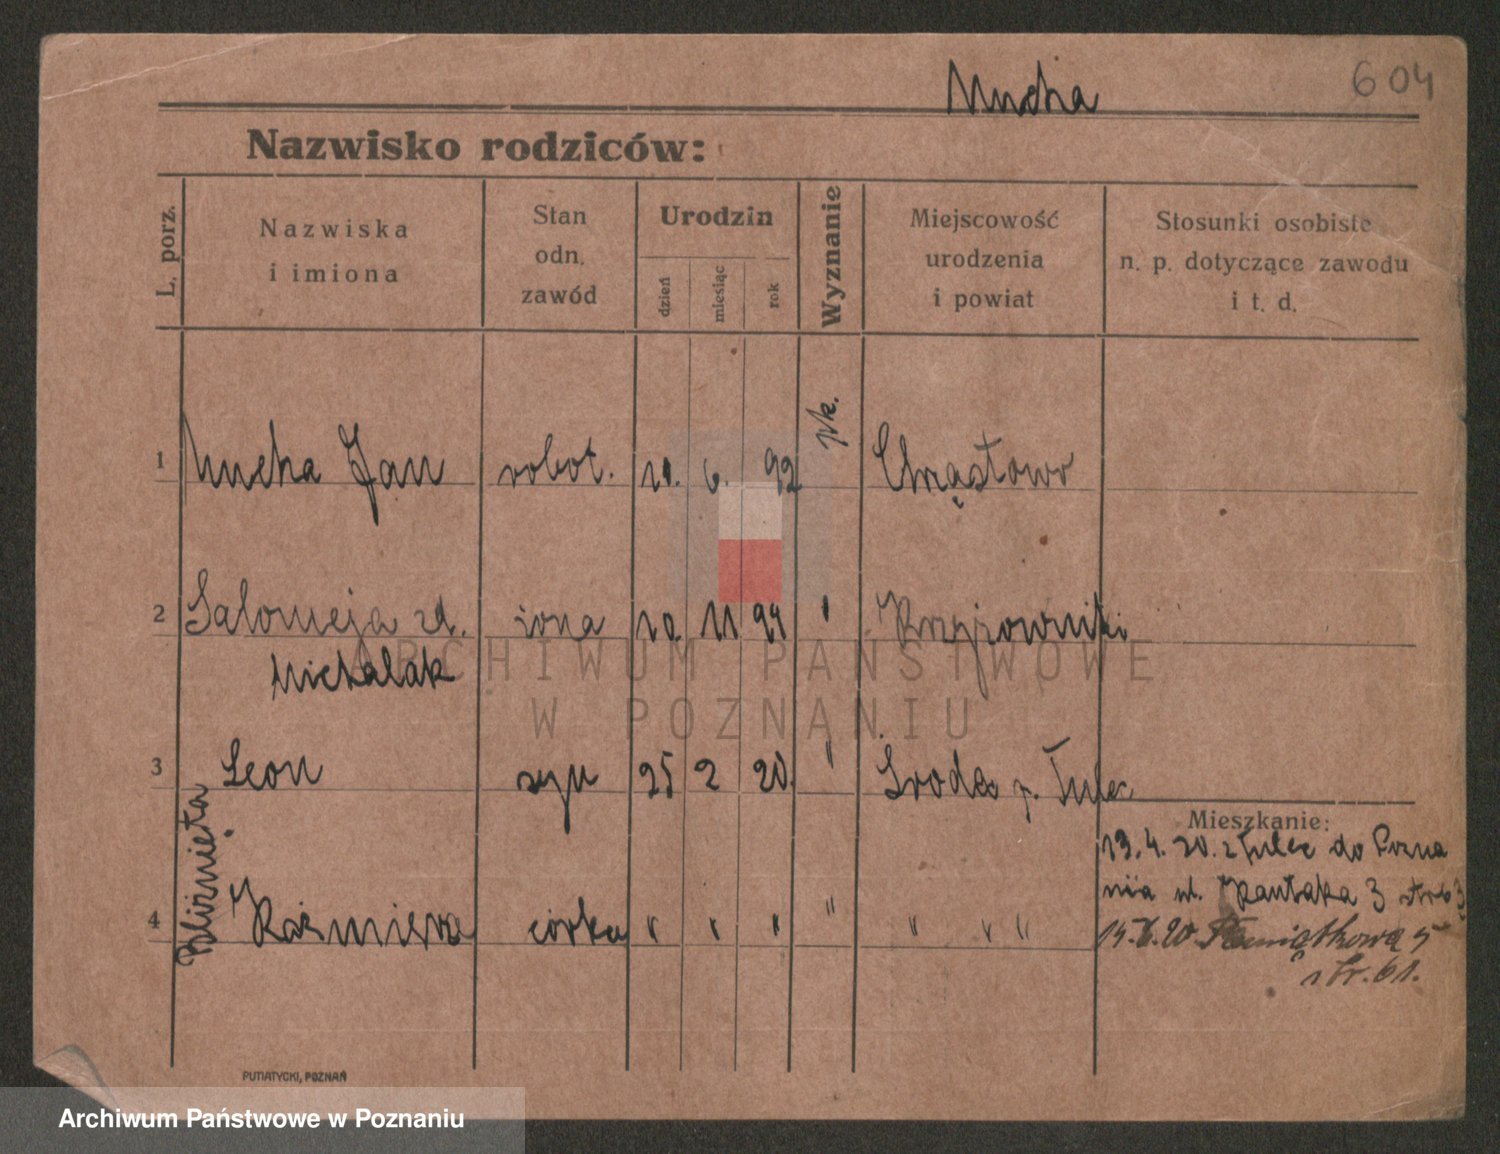 Mucha
604
Nazwisko rodziców:
L. porz.
Nazwiska
i imiona
Stan
odn.
zawód
Urodzin
dzień
miesiąc
rok
Wyznanie
Miejscowość
urodzenia
i powiat
Stosunki osobiste
n. p. dotyczące zawodu
i t. d.
1 Mucha Jan robot. 6. 92 Chrząstowo
2 Salomeja żona 11 " 
Michalak
3 Leon syn 25 2 20. " Środa p. Tulec
Bliźnięta
4 Kaźmiera córka " " " " " " "
Mieszkanie:
13.4.20. z Tulec do Pozna
nia ul. Kantaka 3
20. 5
str. 61.
PUTIATYCKI, POZNAŃ
ARCHIWUM PAŃSTWOWE
W POZNANIU
Archiwum Państwowe w Poznaniu